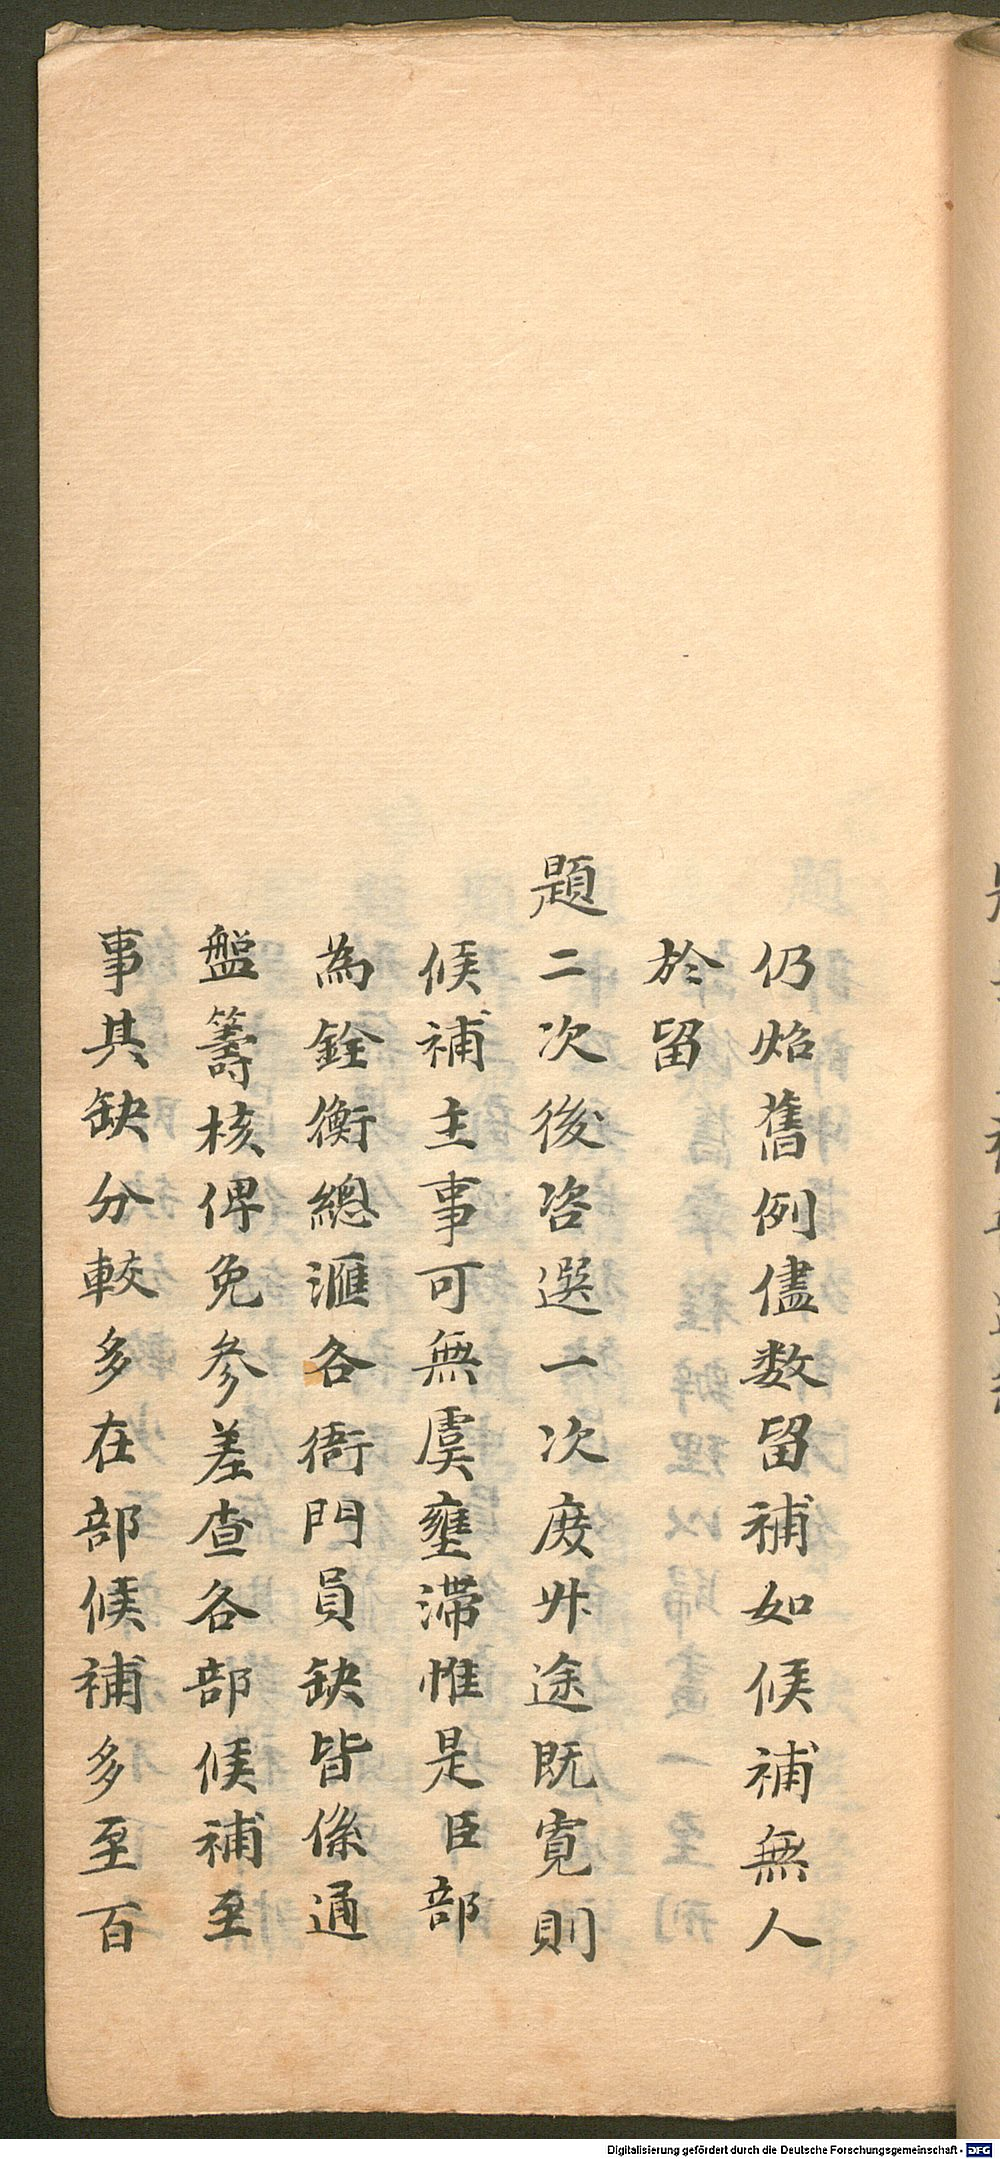 仍炤舊例儘数留補如候補無人
於留
題二次後咨選一次庻升途既寛則
候補主事可無虞壅滯惟是臣部
為銓衡總滙各衙門員缺皆係通
盤籌核俾免参差查各部候補主
事其缺分較多在部候補多至百
Digitalisierung gefördert durch die Deutsche Forschungsgemeinschaft - DFG